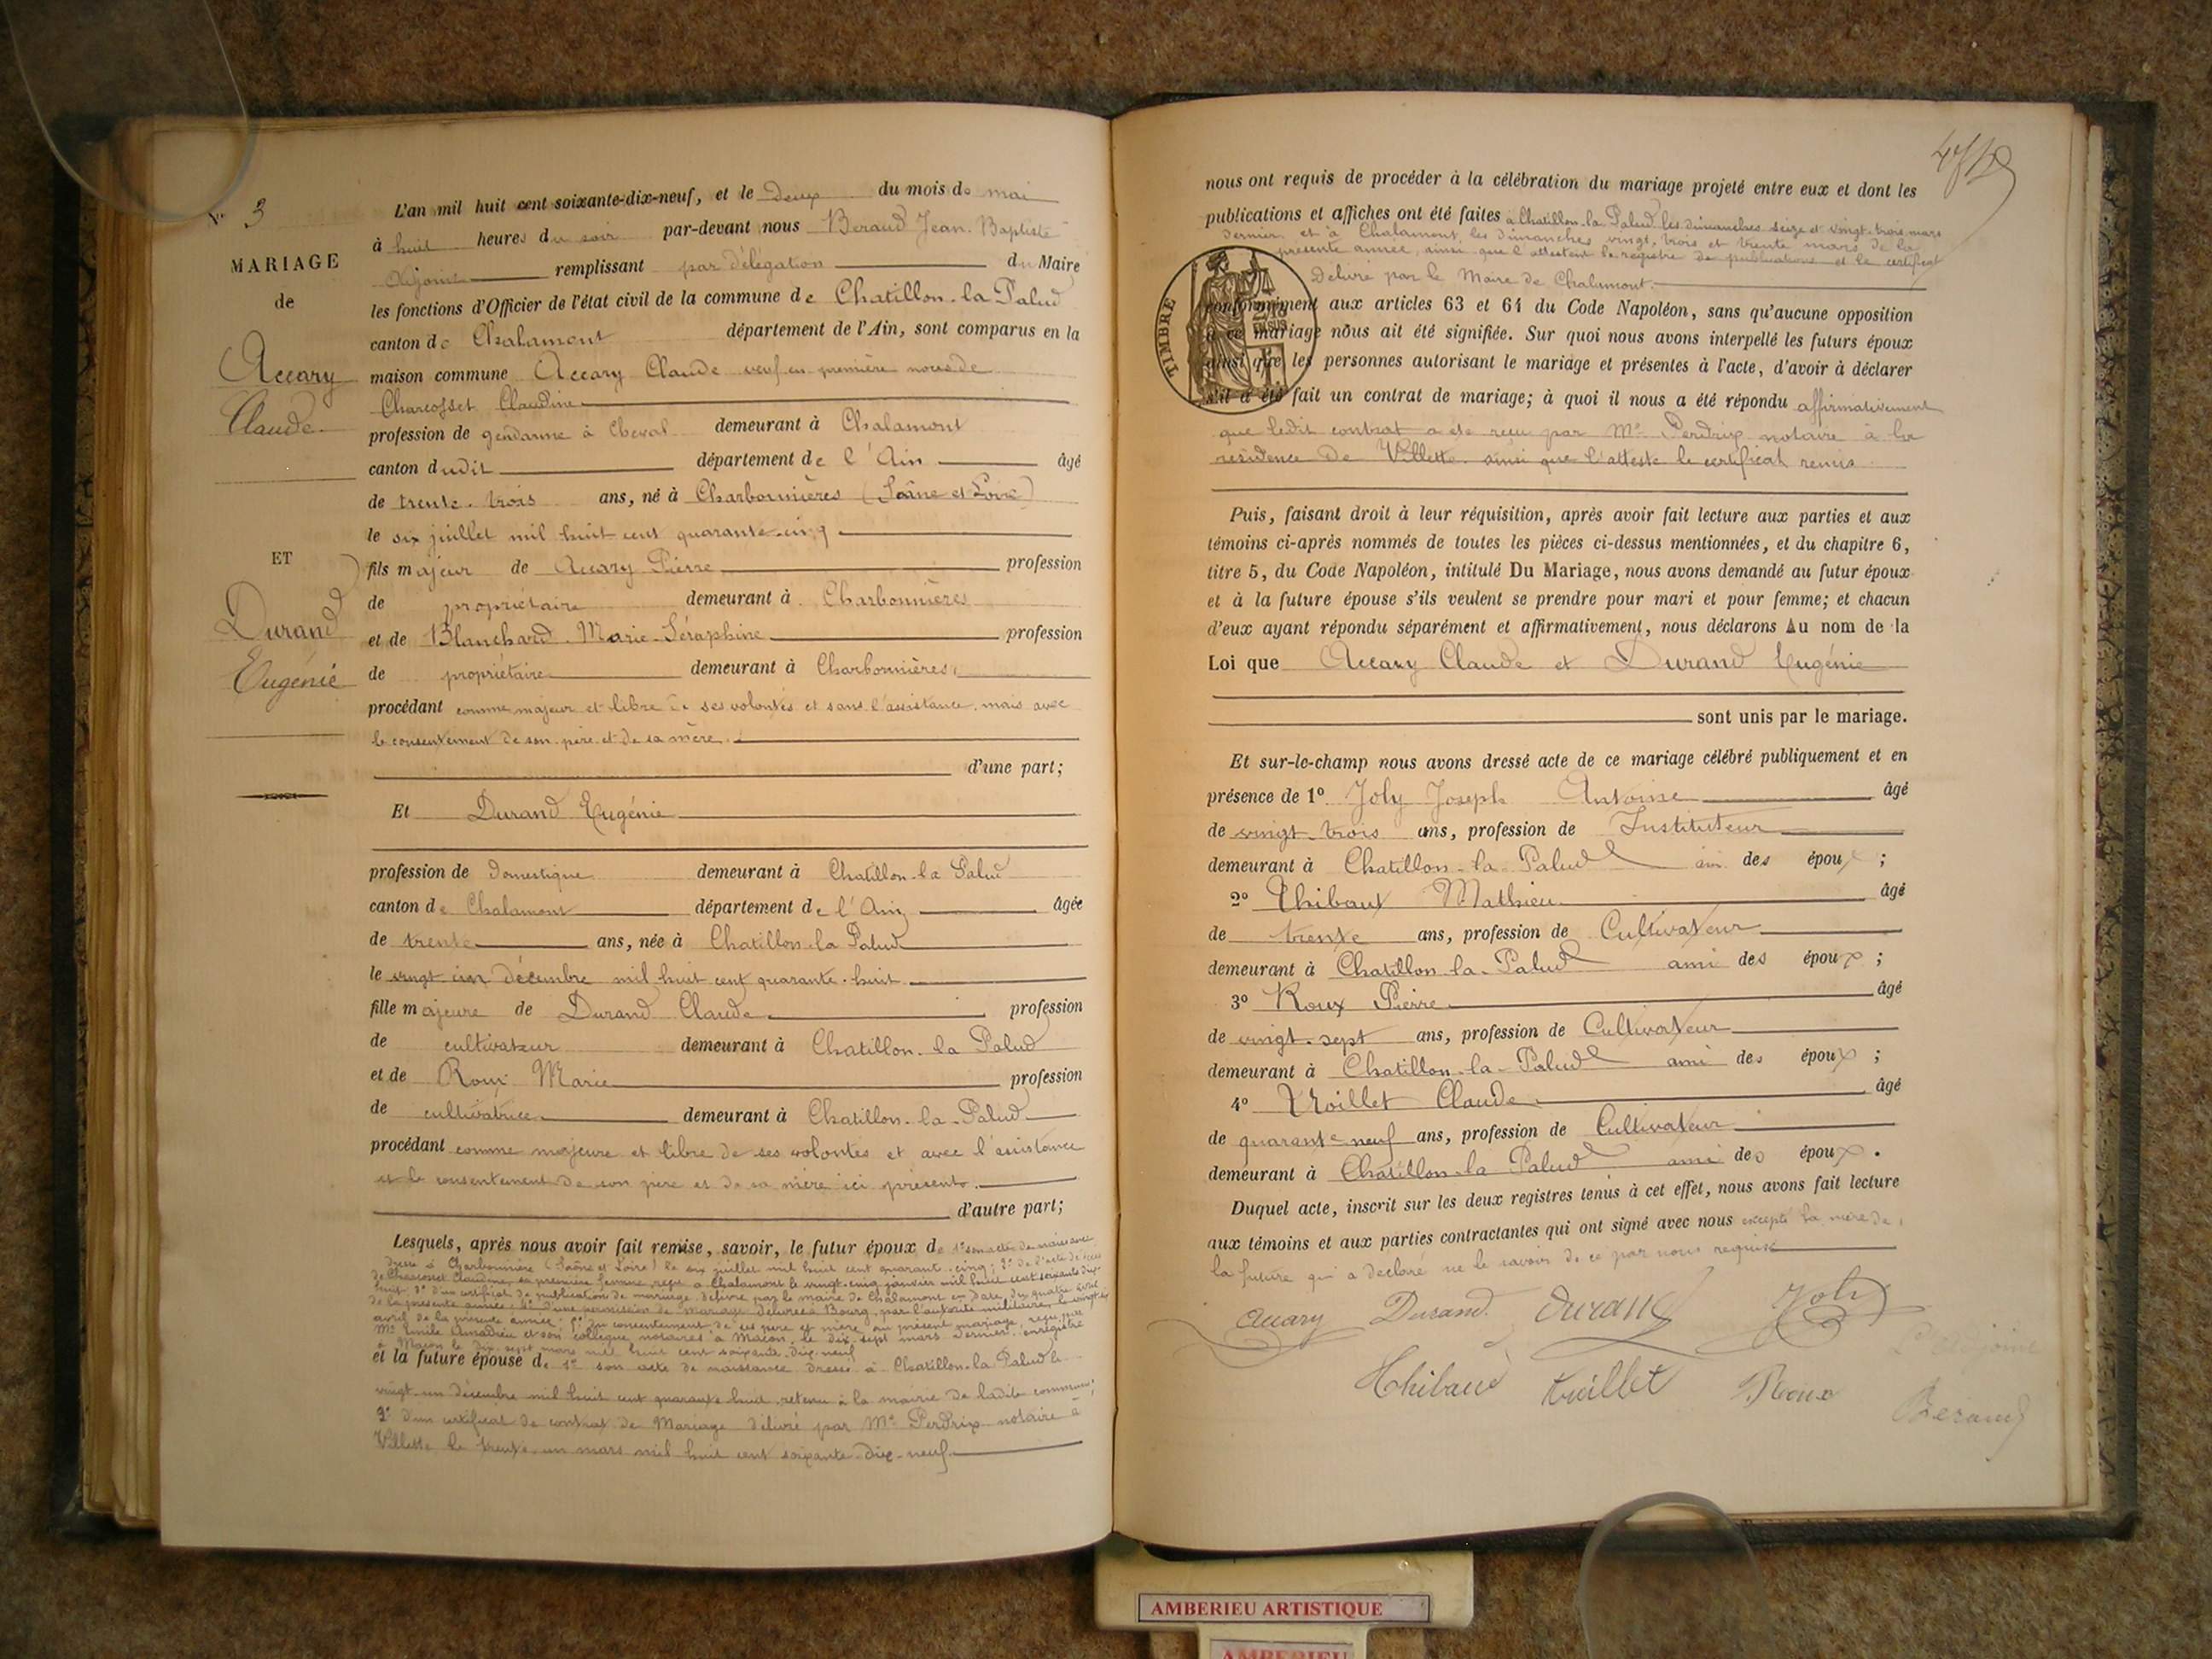 N° 3
MARIAGE
de
Accary
Claude
ET
Durand
Eugénie
L'an mil huit cent soixante-dix-neuf, et le Deux du mois de mai
à huit heures du soir par-devant nous Beraud Jean-Baptiste
Adjoint remplissant par délégation du Maire
les fonctions d'Officier de l'état civil de la commune de Chatillon-la Palud
canton de Chalamont département de l'Ain, sont comparus en la
maison commune Accary Claude veuf en première noces de
Charcosset Claudine
profession de gendarme à Cheval demeurant à Chalamont
canton dudit département de l'Ain âgé
de trente-trois ans, né à Charbonnières (Saône et Loire)
le six juillet mil huit cent quarante-cinq
fils majeur de Accary Pierre profession
de propriétaire demeurant à Charbonnières
et de Blanchard Marie-Séraphine profession
de propriétaire demeurant à Charbonnières
procédant comme majeur et libre de ses volontés et sans l'assistance, mais avec
le consentement de son père et de sa mère
d'une part;
Et Durand Eugénie
profession de Domestique demeurant à Chatillon-la Palud
canton de Chalamont département de l'Ain âgée
de trente ans, née à Chatillon-la Palud
le vingt un décembre mil huit cent quarante-huit
fille majeure de Durand Claude profession
de cultivateur demeurant à Chatillon-la Palud
et de Roux Marie profession
de cultivatrice demeurant à Chatillon-la-Palud
procédant comme majeure et libre de ses volontés et avec l'assistance
et le consentement de son père et de sa mère ici présents.
d'autre part;
Lesquels, après nous avoir fait remise, savoir, le futur époux de 1° son acte de naissance
dressé à Charbonnière (Saône et Loire) le six juillet mil huit cent quarant-cinq; 2° de l'acte de décès
de Charcosset Claudine, sa première femme, reçu à Chalamont le vingt-cinq janvier mil huit cent soixante dix-
huit, 3° d'un certificat de publication de mariage délivré par le maire de Chalamont en date du quatre avril
de la présente année; 4° d'une permission de mariage délivrée à Bourg, par l'autorité militaire, le vingt
avril de la présente année; 5° du consentement de ses père et mère au présent mariage, reçu par
Me Emile Amadieu et son collègue notaires à Macon, le dix-sept mars dernier, enregistré
à Macon le dix-sept mars mil huit cent soixante-dix-neuf
et la future épouse de 1° son acte de naissance dressé à Chatillon-la Palud le
vingt-un décembre mil huit cent quarante huit retenu à la mairie de ladite commune;
2° d'un certificat de contrat de Mariage délivré par Me Perdrix notaire à
Villette le trente-un mars mil huit cent soixante-dix-neuf
nous ont requis de procéder à la célébration du mariage projeté entre eux et dont les
publications et affiches ont été faites à Chatillon-la Palud les dimanches seize et vingt-trois mars
dernier et à Chalamont, les dimanches vingt, trois et trente mars de la
présente année, ainsi que l'attestent le registre de publications et le certificat
Délivré par le Maire de Chalamont.
TIMBRE
conformément aux articles 63 et 64 du Code Napoléon, sans qu'aucune opposition
à ce mariage nous ait été signifiée. Sur quoi nous avons interpellé les futurs époux
ainsi que les personnes autorisant le mariage et présentes à l'acte, d'avoir à déclarer
s'il a été fait un contrat de mariage; à quoi il nous a été répondu affirmativement
que ledit contrat a été reçu par Me Perdrix notaire à la
résidence de Villette ainsi que l'atteste le certificat remis
Puis, faisant droit à leur réquisition, après avoir fait lecture aux parties et aux
témoins ci-après nommés de toutes les pièces ci-dessus mentionnées, et du chapitre 6,
titre 5, du Code Napoléon, intitulé Du Mariage, nous avons demandé au futur époux
et à la future épouse s'ils veulent se prendre pour mari et pour femme; et chacun
d'eux ayant répondu séparément et affirmativement, nous déclarons Au nom de la
Loi que Accary Claude et Durand Eugénie
sont unis par le mariage.
Et sur-le-champ nous avons dressé acte de ce mariage célébré publiquement et en
présence de 1° Joly Joseph Antoine âgé
de vingt-trois ans, profession de Instituteur
demeurant à Chatillon-la-Palud ami des époux;
2° Thibaux Mathieu âgé
de trente ans, profession de Cultivateur
demeurant à Chatillon-la-Palud ami des époux;
3° Roux Pierre âgé
de vingt-sept ans, profession de Cultivateur
demeurant à Chatillon-la-Palud ami des époux;
4° Troillet Claude âgé
de quarante neuf ans, profession de Cultivateur
demeurant à Chatillon-la Palud ami des époux.
Duquel acte, inscrit sur les deux registres tenus à cet effet, nous avons fait lecture
aux témoins et aux parties contractantes qui ont signé avec nous excepté la mère de
la future qui a déclaré ne le savoir de ce par nous requise
Accary Durand Durand Joly
L'adjoint
Thibaud Troillet Roux Beraud
AMBERIEU ARTISTIQUE
AMBERIEU